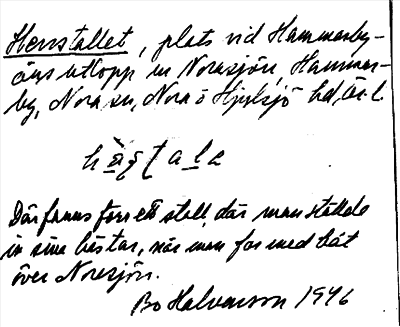 Herrstallet, plats vid Hammarby-
åns utlopp ur Norasjön, Hammar-
by, Nora sn, Nora o Hjulsjö hd, Ör. l.
Där fanns förr ett stall, där man ställde
in sina hästar, när man for med båt
över Norasjön.
Bo Halvarsson 1946